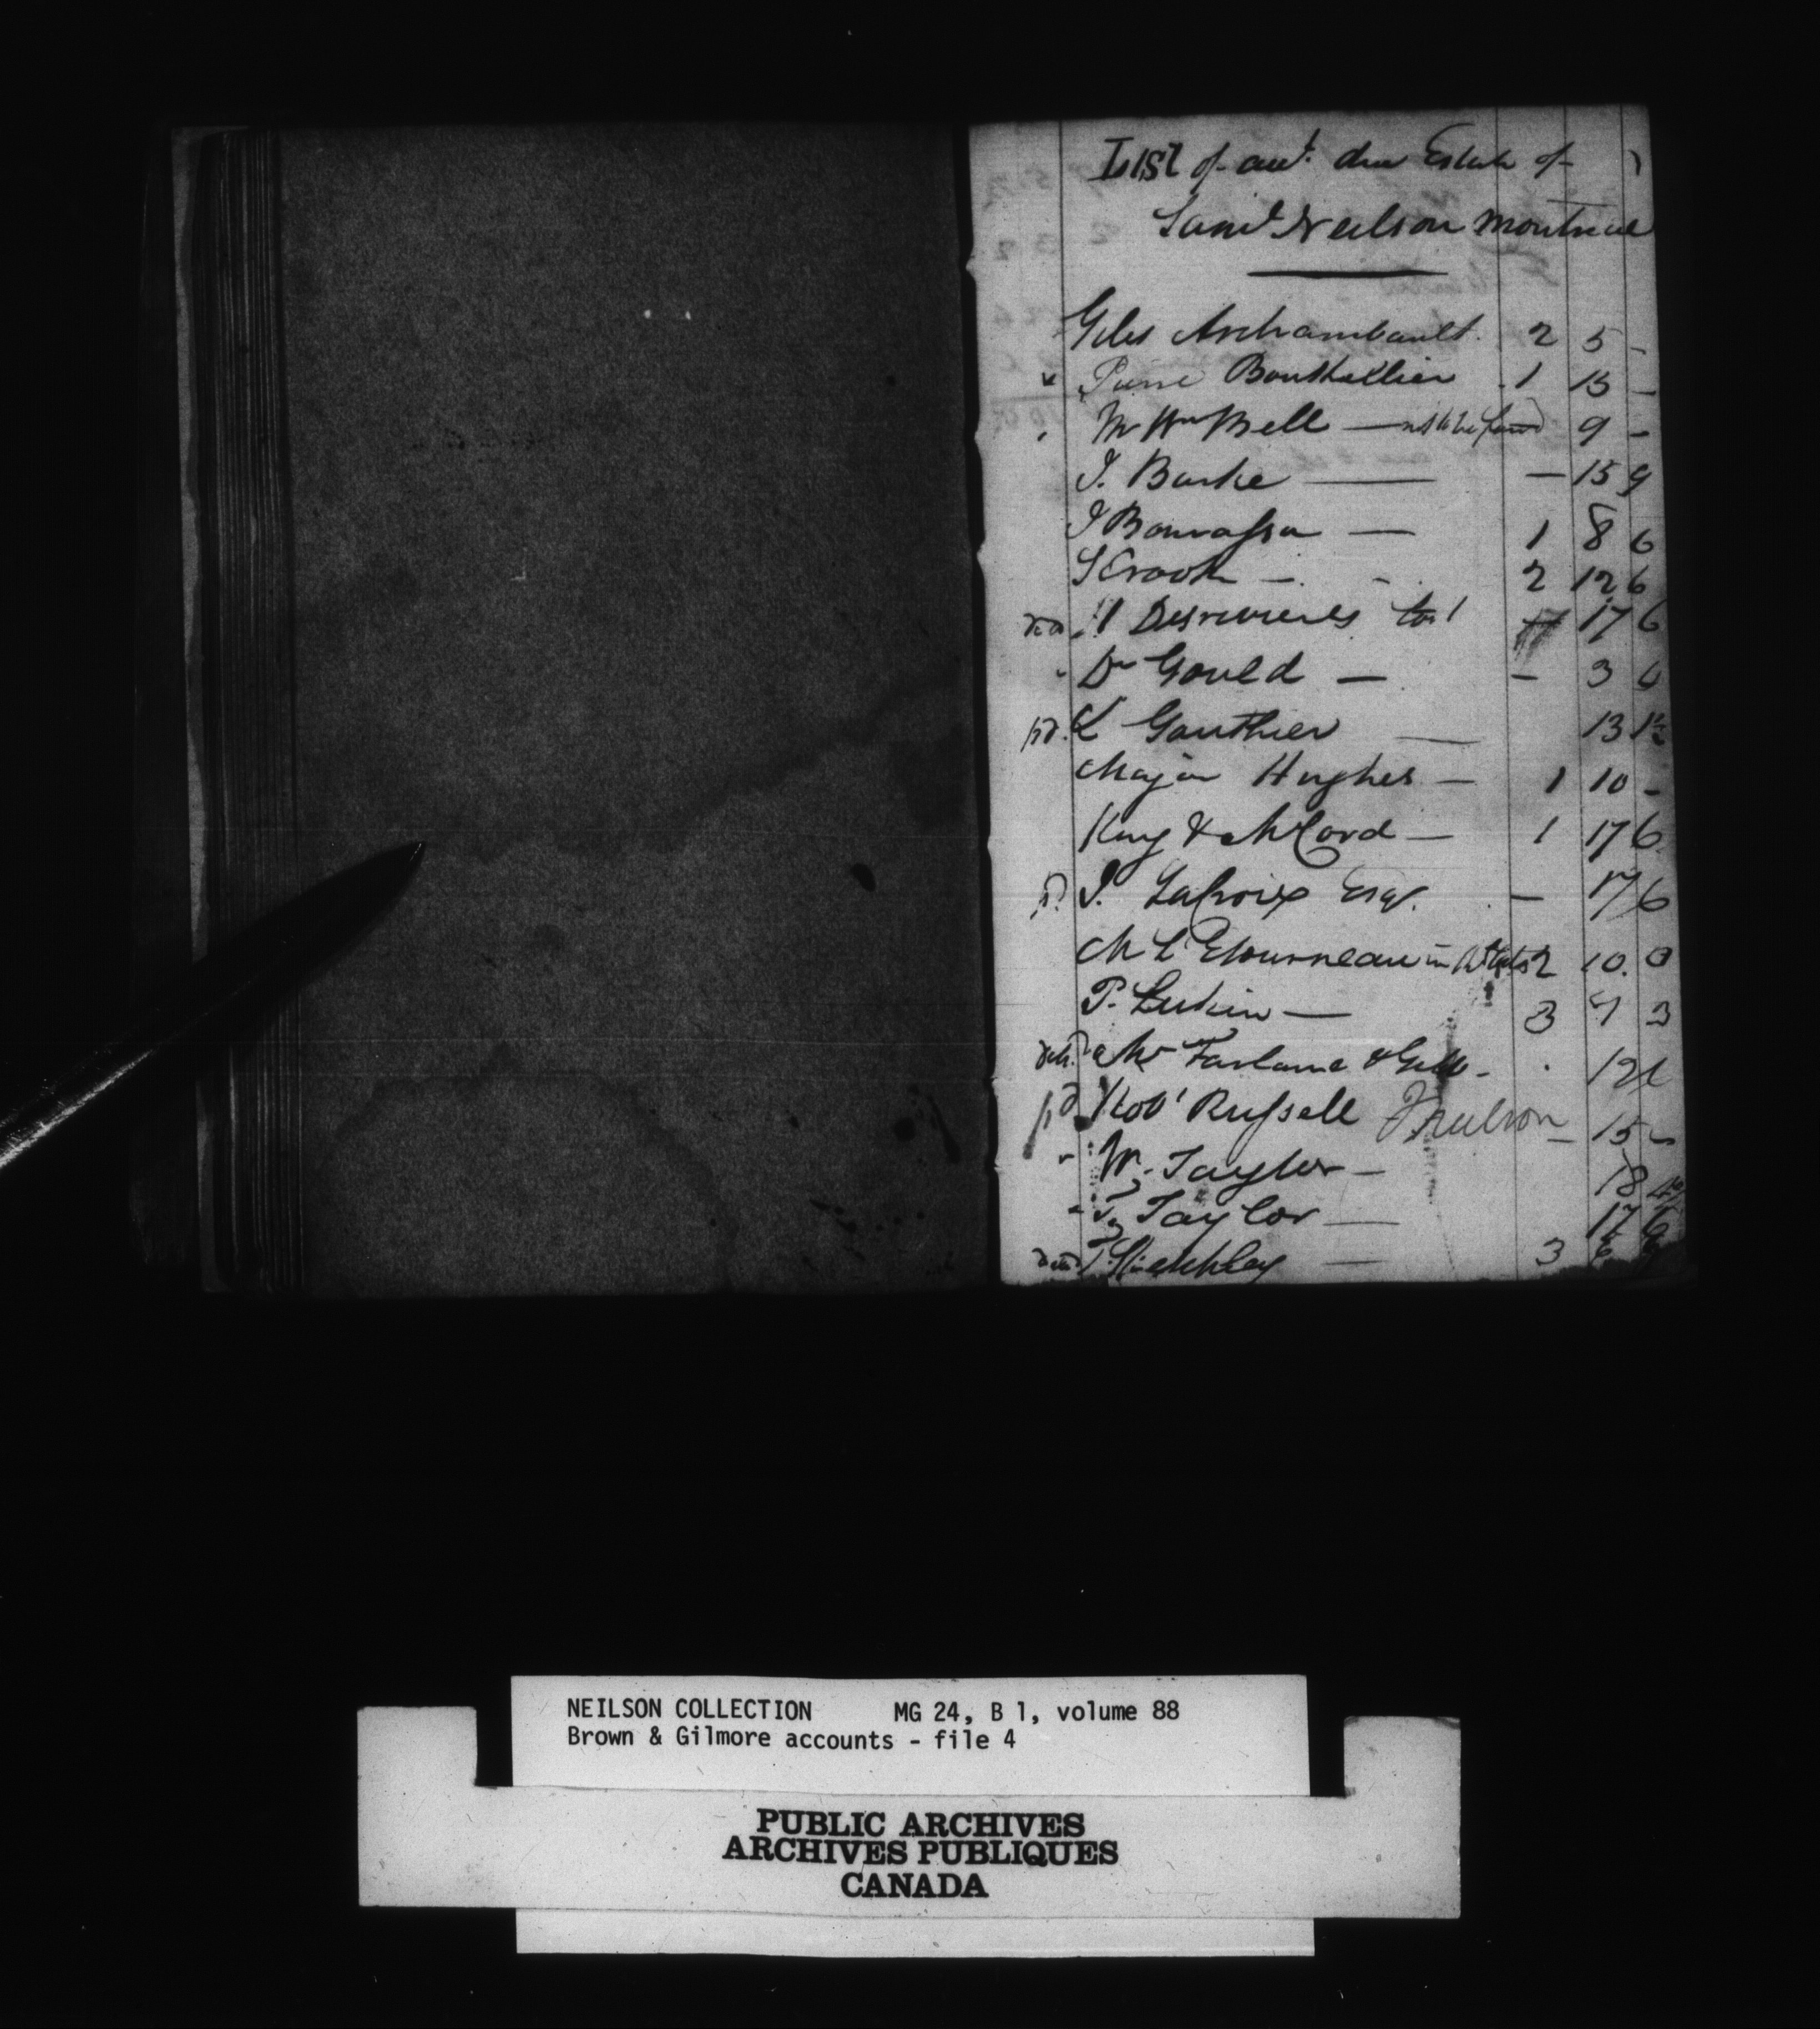 List of acct. due Estate of
Saml Neilson Montreal
Giles Archambault. 2 5 -
Pierre Bouthillier 1 15 -
Mr Wm Bell — not to be found 9 -
J. Burke — — 15 9
J Bourassa — 1 8 6
S Crook - 2 12 6
H Desrivieres 17 6
Dr Gould — - 3 6
pd. L Gauthier — 13 1½
Major Hughes — 1 10 -
King & McCord — 1 17 6
pd. J. LaCroix Esqr. — 17 6
M L'Etourneau in 2 10. 0
P. Lukin — 3 7 3
Mc Farlane & Gill - 12 6
pd Robt Russell J Neilson - 15 -
W. Taylor — 18
T. Taylor — 17 6
T. — 3 6
NEILSON COLLECTION MG 24, B 1, volume 88
Brown & Gilmore accounts - file 4
PUBLIC ARCHIVES
ARCHIVES PUBLIQUES
CANADA